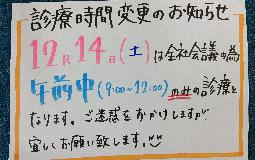 診療時間変更のお知らせ
12月14日(土)は全社会議の為
午前中(9:00~12:00)のみの診療と
なります。ご迷惑をおかけしますが
宜しくお願い致します。